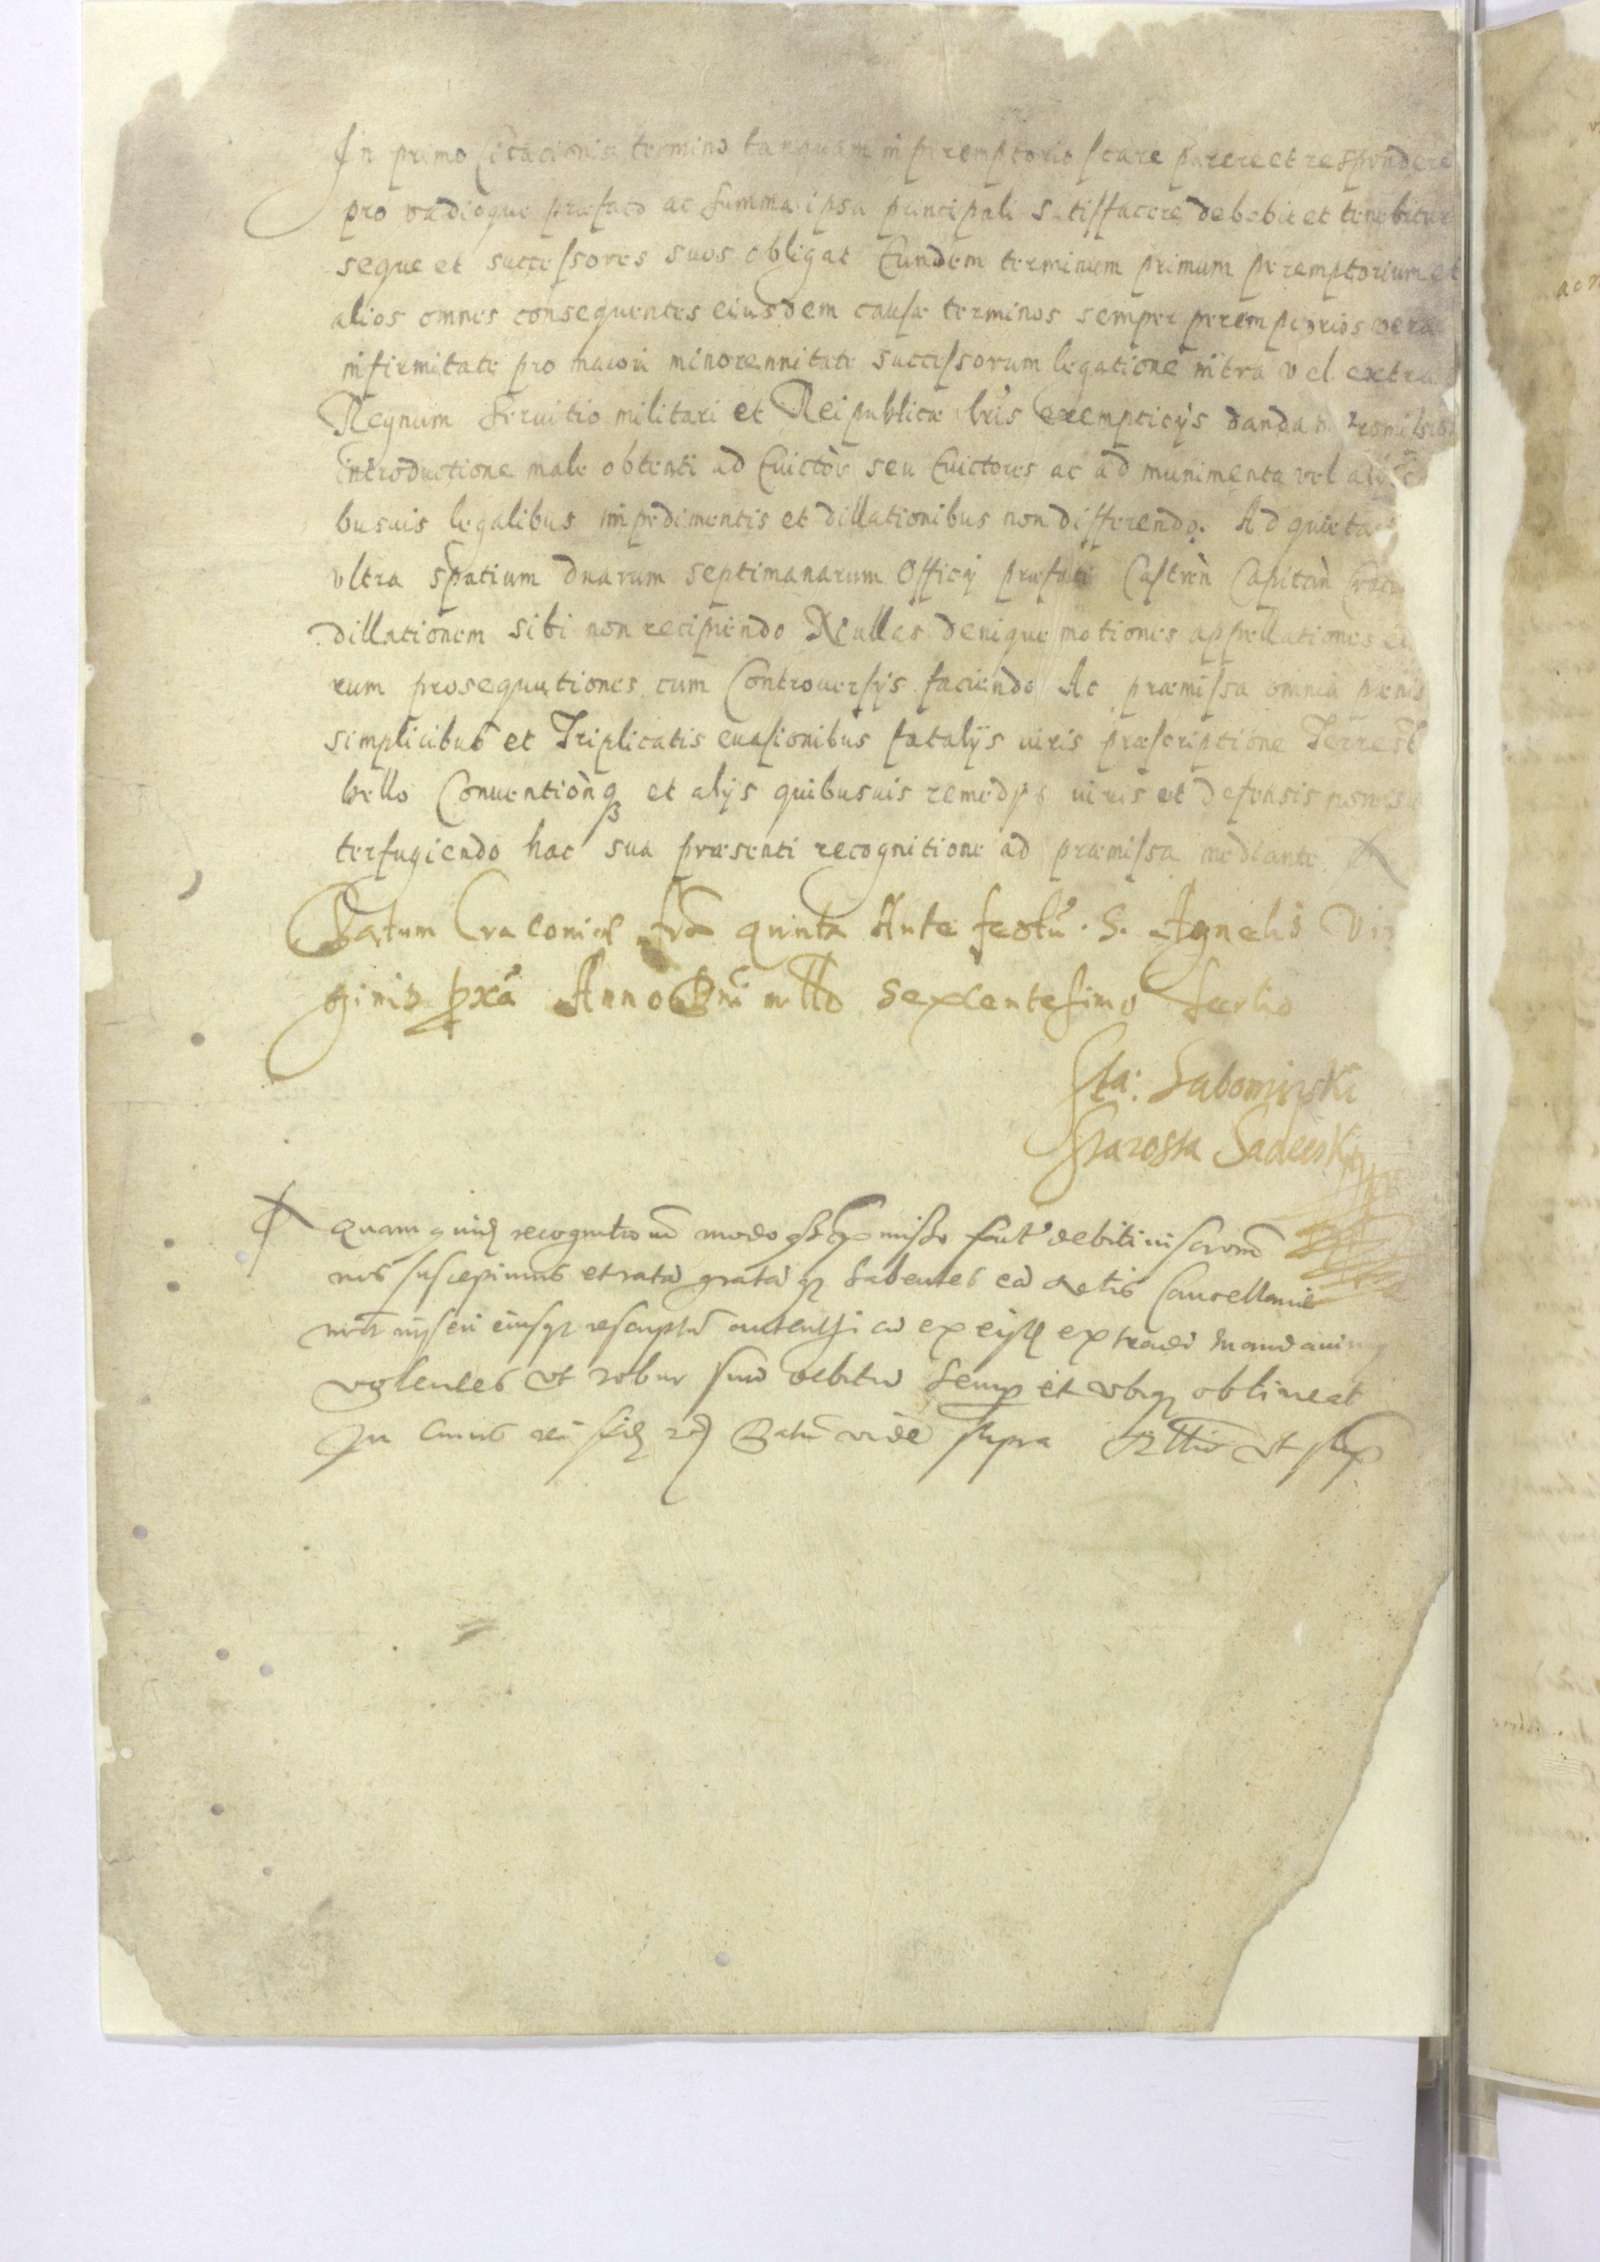 In primo Citacionis termino tanquam in peremptorio stare parere et respondere
pro vadioque præfato ac summa ipsa principali satisfacere debebit et tenebitur
seque et successores suos obligat Eundem terminum primum peremptorium et
alios omnes consequentes eiusdem causæ terminos semper peremptorios vera
infirmitate pro maiori minorennitate successorum legatione intra vel extra
Regnum servitio militari et Reipublicæ exempticijs danda
introductione male obtenti ad Evictorē seu Evictores ac ad munimenta vel
busuis legalibus impedimentis et dillationibus non differendo. Ad quieta
vltra spatium duarum septimanarum Officij præfati Castreñ Capitañ
dillationem sibi non recipiendo Nullas denique motiones appellationes
rum prosequutiones cum Controuersijs faciendo Ac præmissa omnia pænis
simplicibus et Triplicatis euasionibus fatalijs iuris præscriptione Terrest
bello Conuentionq et alijs quibusuis remedijs iuris et defensis non
terfugiendo hac sua præsenti recognitione ad præmissa mediante
Datum Cracoviæ quinta Ante festū S. Agnetis Vir
ginis pxã Anno Dñi mllo sexcentesimo tertio
Sta: Lubomirski
Starosta Sadecki
quam quid recognitionē modo præmisso
nos suscepimus et ratā gratā q habentes eā Actis Cancellariæ
inseri eiusq rescriptū ex extradi mandauimus
volentes vt robur suū debitū semp et vbiq obtineat
In cuius rei fid Datū vide supra vt sup